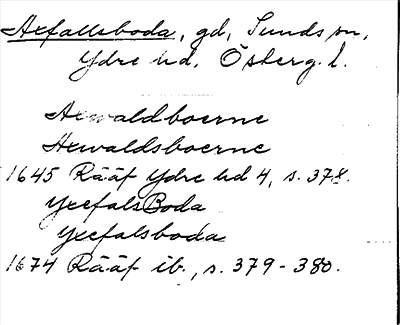 Axfallsboda, gd, Sunds sn,
Ydre hd, Östergl.
Axwaldboerne
Axwaldsboerne
1645 Rääf Ydre hd 4, s. 378.
YxefalsBoda
Yxefalsboda
1674 Rääf ib., s. 379-380.